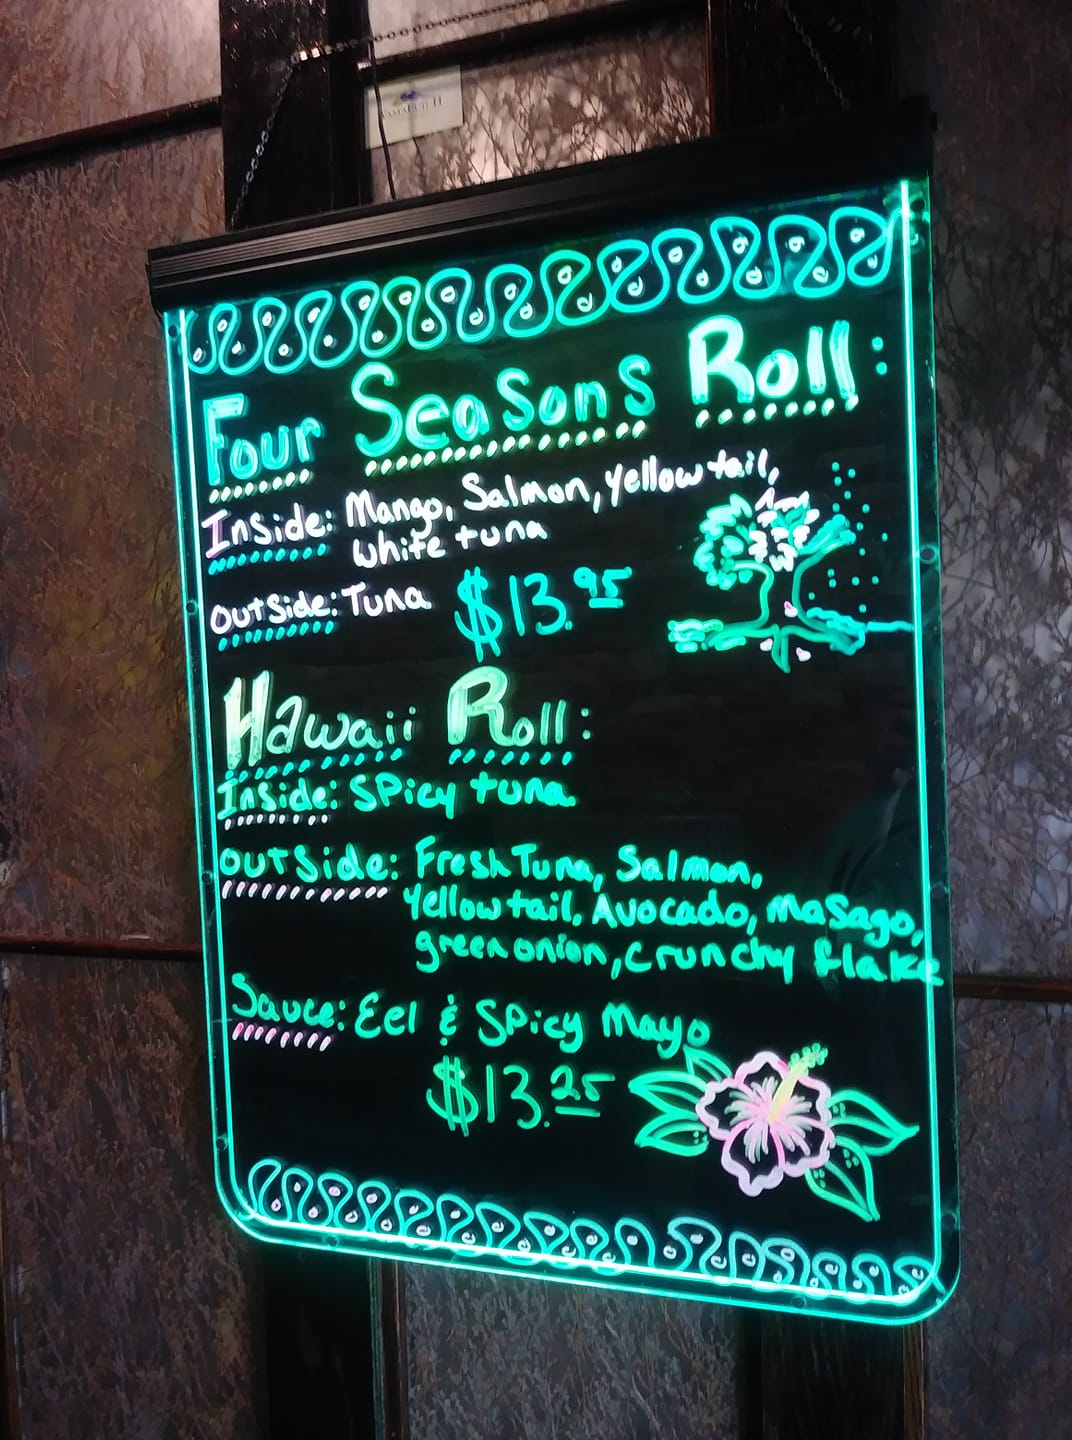 Four Seasons Roll:
Inside: Mango, Salmon, yellow tail,
white tuna
outside: Tuna $13.95
Hawaii Roll:
Inside: Spicy tuna
outside: Fresh Tuna, Salmon,
Yellow tail, Avocado, masago,
green onion, crunchy flake
Sauce: Eel & Spicy Mayo
$13.25